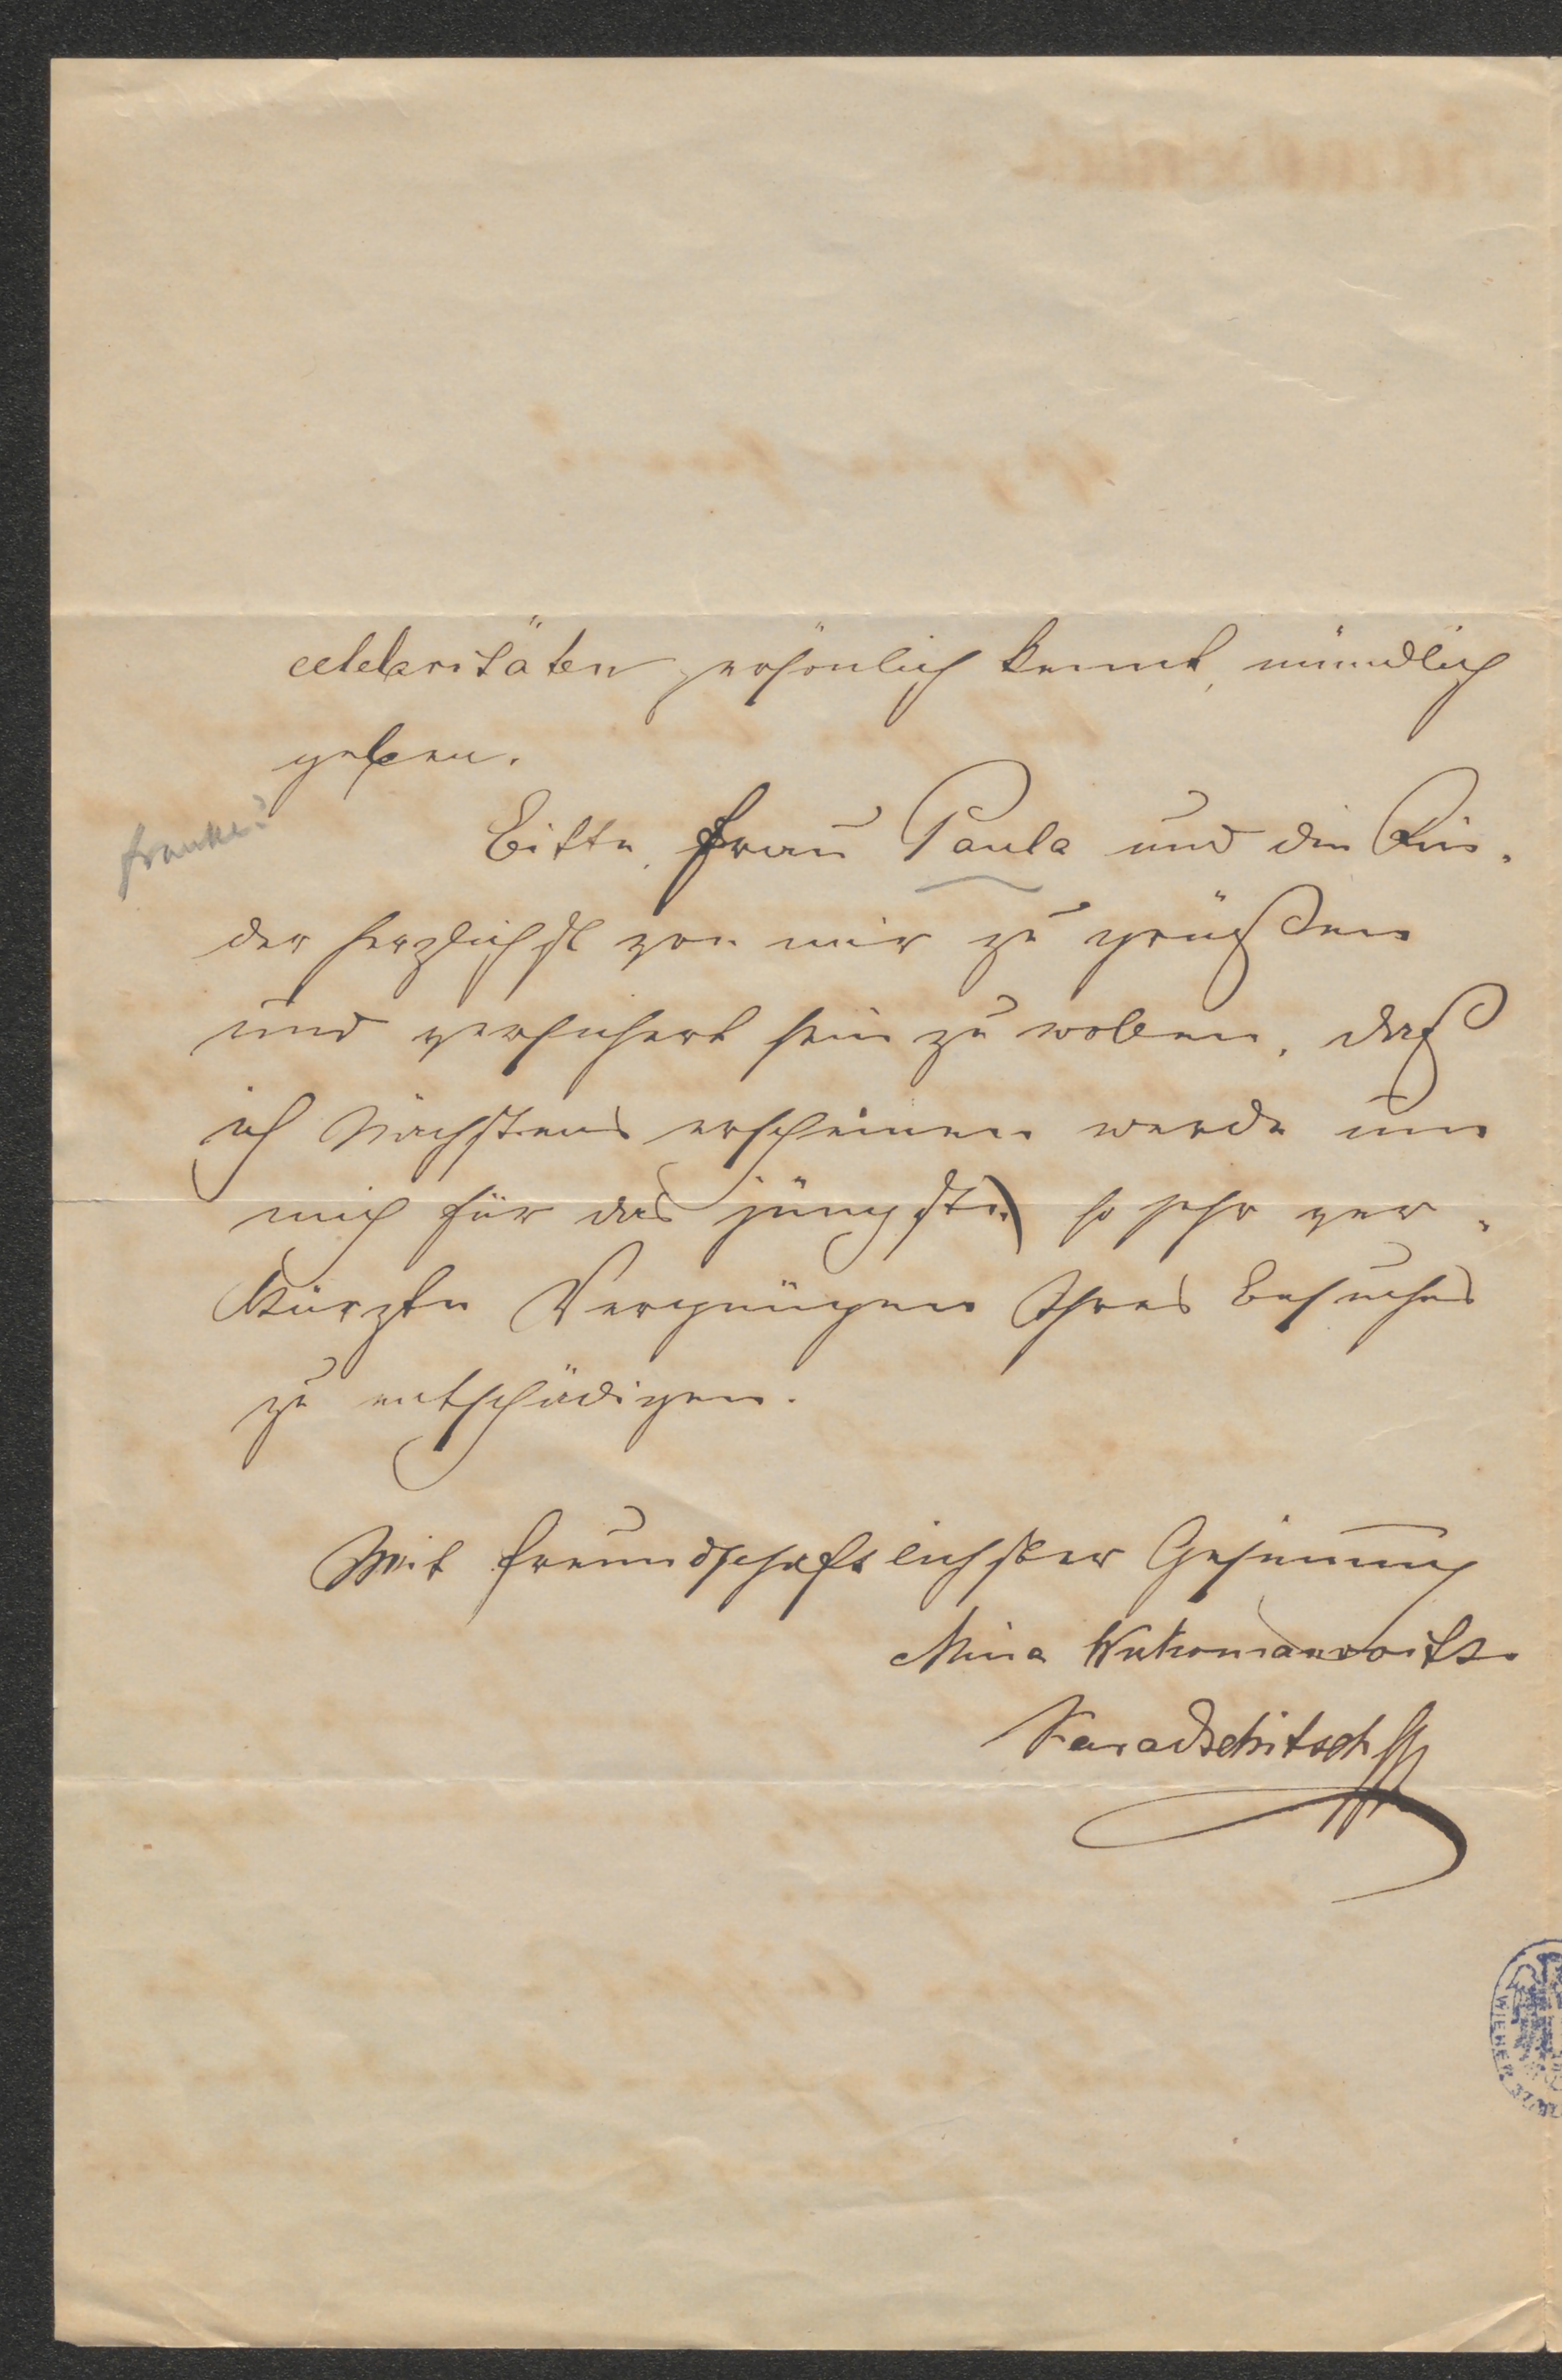 celebaritäten persönlich kennt, mündlich
geben.
franke?
Bitte, Frau Paula und die Kin-
der herzlichst von mir zu grüßen
und versichert sein zu wollen, daß
ich nächstens erscheinen werde um
mich für das jüngste so sehr ver-
kürzte Vergnügen Ihres Besuches
zu entschädigen.
Mit freundschaftlichster Gesinnung
Mina Wukomanowits
Karadschitsch
WIENER